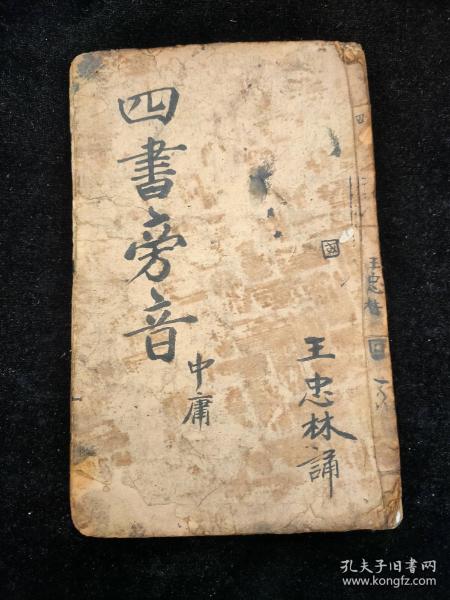 四書旁音
中庸
王忠林誦
王忠林
孔夫子旧书网
www.kongfz.com